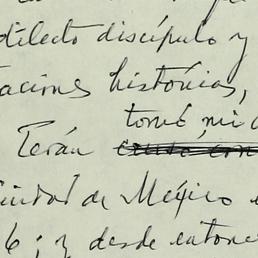 dilecto discípulo y
taciones históricas,
tomé mi
Terán
ciudad de México
6; y desde entonc